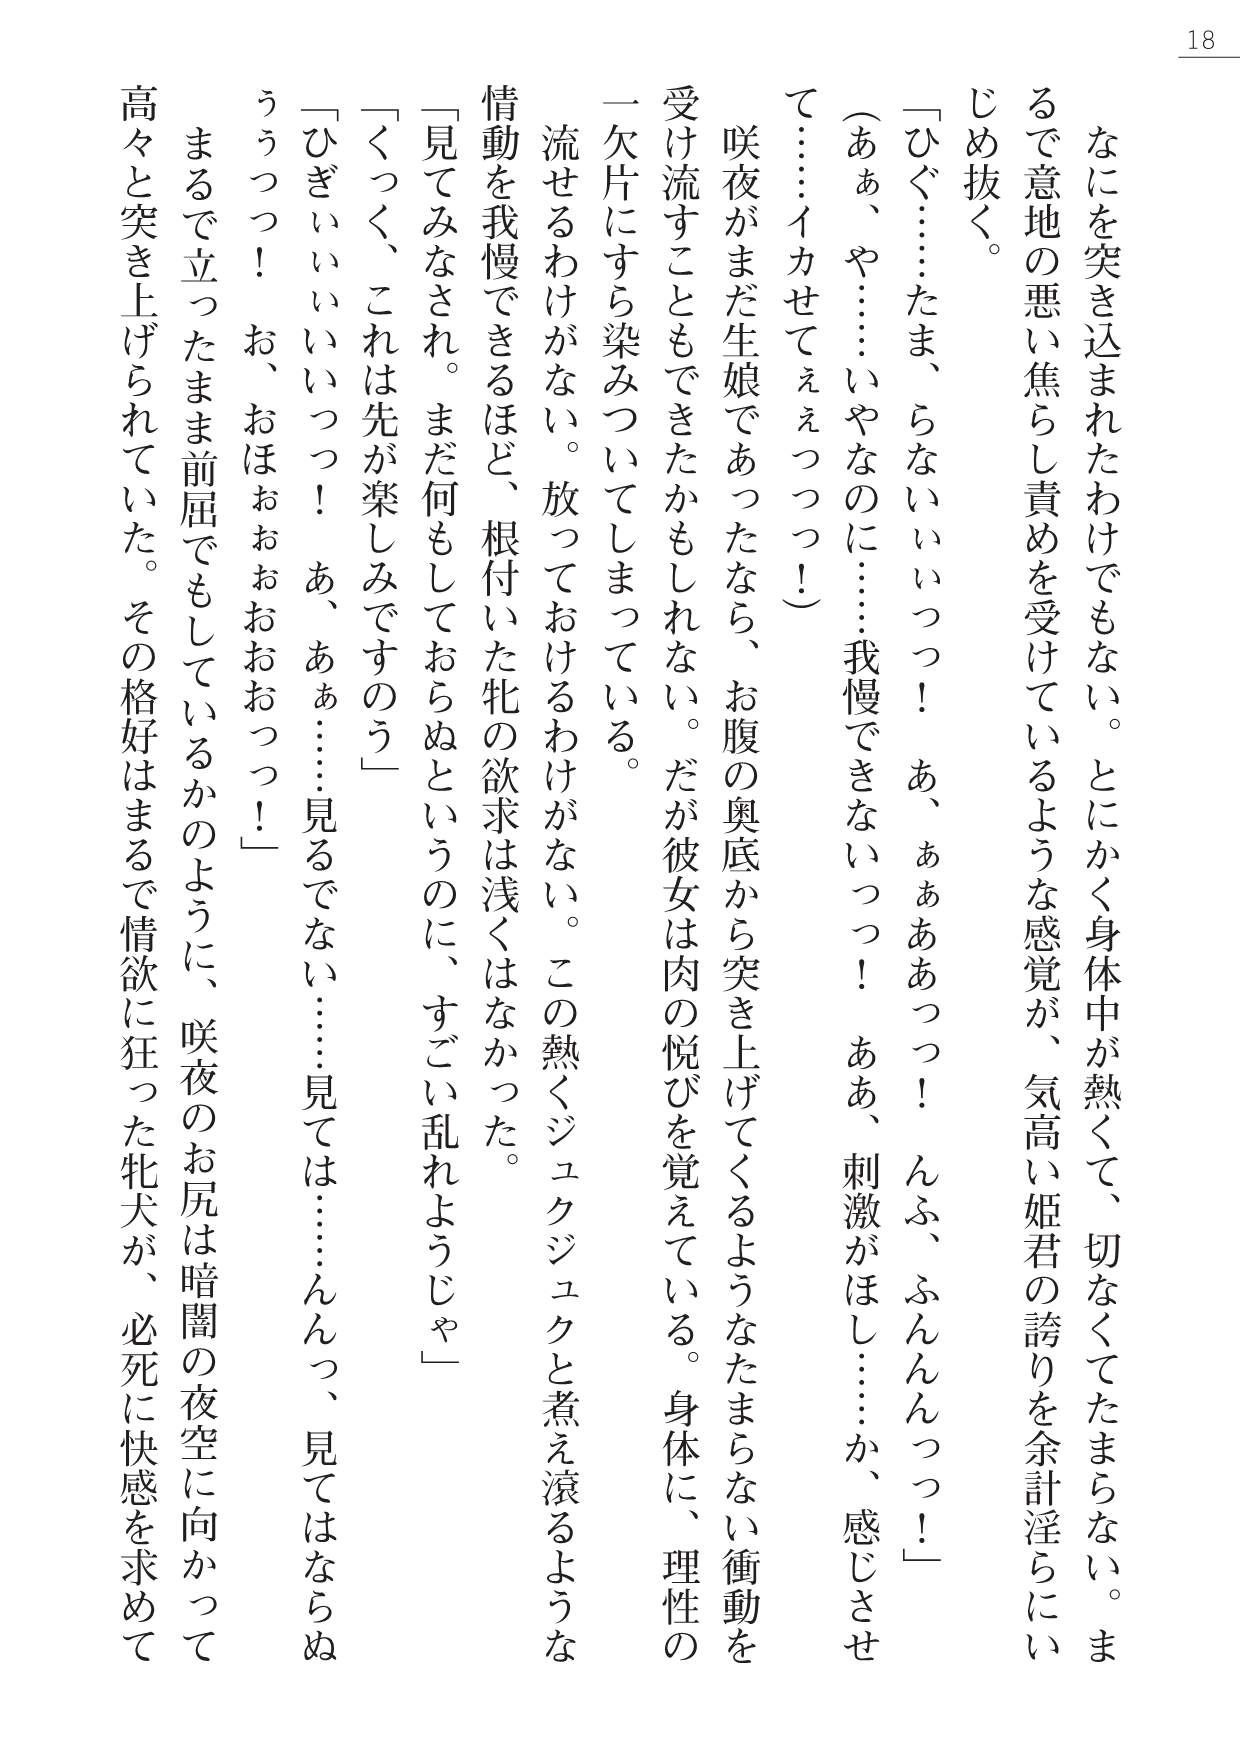 18
　なにを突き込まれたわけでもない。とにかく身体中が熱くて、切なくてたまらない。ま
るで意地の悪い焦らし責めを受けているような感覚が、気高い姫君の誇りを余計淫らにい
じめ抜く。
「ひぐ……たま、らないぃぃっっ！　あ、ぁぁああっっ！　んふ、ふんんんっっ！」
（あぁ、や……いやなのに……我慢できないっっ！　ああ、刺激がほし……か、感じさせ
て……イカせてぇぇっっっ！）
　咲夜がまだ生娘であったなら、お腹の奥底から突き上げてくるようなたまらない衝動を
受け流すこともできたかもしれない。だが彼女は肉の悦びを覚えている。身体に、理性の
一欠片にすら染みついてしまっている。
　流せるわけがない。放っておけるわけがない。この熱くジュクジュクと煮え滾るような
情動を我慢できるほど、根付いた牝の欲求は浅くはなかった。
「見てみなされ。まだ何もしておらぬというのに、すごい乱れようじゃ」
「くっく、これは先が楽しみですのう」
「ひぎぃぃぃいいっっ！　あ、あぁ……見るでない……見ては……んんっ、見てはならぬ
ぅぅっっ！　お、おほぉぉぉおおおっっ！」
　まるで立ったまま前屈でもしているかのように、咲夜のお尻は暗闇の夜空に向かって
高々と突き上げられていた。その格好はまるで情欲に狂った牝犬が、必死に快感を求めて